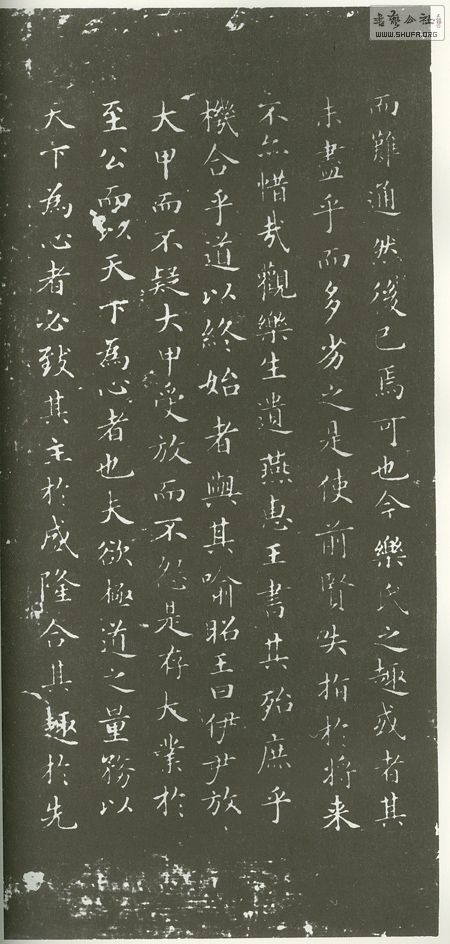 書藝公社
WWW.SHUFA.ORG
而難通然後已焉可也今樂氏之趣或者其
未盡乎而多劣之是使前賢失指於將來
不亦惜哉觀樂生遺燕惠王書其殆庶乎
機合乎道以終始者與其喻昭王曰伊尹放
大甲而不疑大甲受放而不怨是存大業於
至公而以天下為心者也夫欲極道之量務以
天下為心者必致其主於盛隆合其趣於先